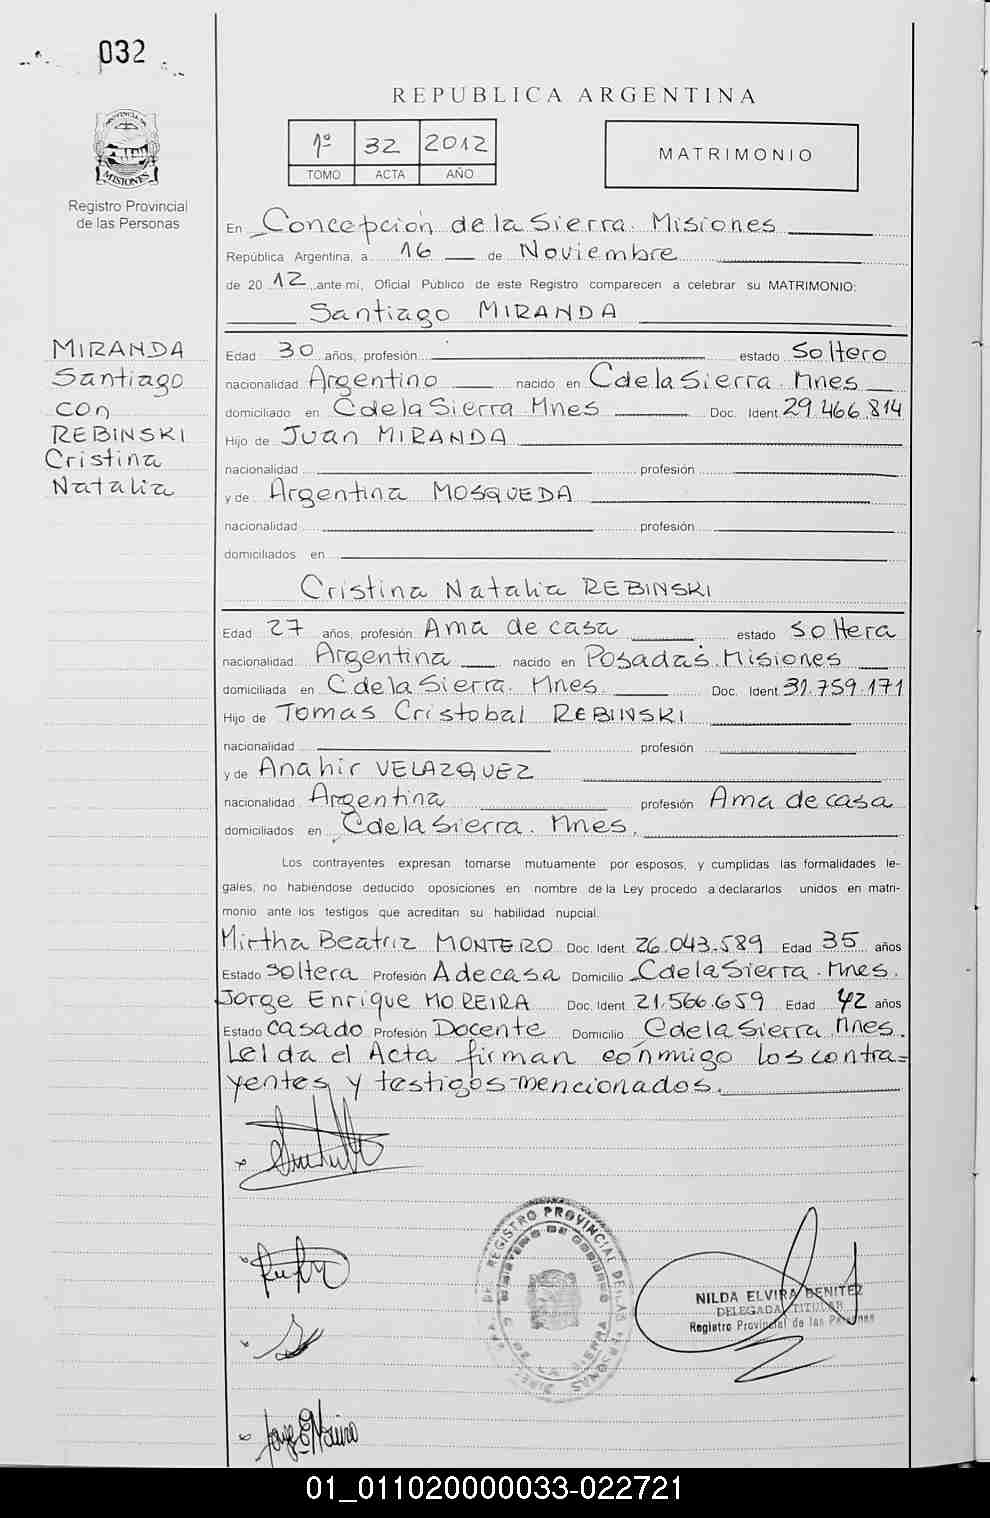 032
PROVINCIA DE
MISIONES
Registro Provincial
de las Personas
REPUBLICA ARGENTINA
1º 32 2012
TOMO ACTA AÑO
MATRIMONIO
En Concepción de la Sierra. Misiones
República Argentina, a 16 de Noviembre
de 20 12 ante mí, Oficial Público de este Registro comparecen a celebrar su MATRIMONIO:
Santiago MIRANDA
MIRANDA
Santiago
con
REBINSKI
Cristina
Natalia
Edad 30 años, profesión estado Soltero
nacionalidad Argentino nacido en C de la Sierra. Mnes
domiciliado en C de la Sierra Mnes Doc. Ident. 29.466.814
Hijo de Juan MIRANDA
nacionalidad profesión
y de Argentina MOSQUEDA
nacionalidad profesión
domiciliados en
Cristina Natalia REBINSKI
Edad 27 años, profesión Ama de casa estado Soltera
nacionalidad Argentina nacido en Posadas. Misiones
domiciliada en C de la Sierra. Mnes. Doc. Ident. 31.759.171
Hijo de Tomas Cristobal REBINSKI
nacionalidad profesión
y de Anahir VELAZQUEZ
nacionalidad Argentina profesión Ama de casa
domiciliados en C de la Sierra. Mnes.
Los contrayentes expresan tomarse mutuamente por esposos, y cumplidas las formalidades le-
gales, no habiéndose deducido oposiciones en nombre de la Ley procedo a declararlos unidos en matri-
monio ante los testigos que acreditan su habilidad nupcial.
Mirtha Beatriz MONTEIRO Doc. Ident. 26.043.589 Edad 35 años
Estado Soltera Profesión A de casa Domicilio C de la Sierra. Mnes.
Jorge Enrique MOREIRA Doc. Ident. 21.566.659 Edad 42 años
Estado Casado Profesión Docente Domicilio C de la Sierra Mnes.
Leida el Acta firman conmigo los contra=
yentes y testigos mencionados.
REGISTRO PROVINCIAL DE LAS PERSONAS
MINISTERIO DE GOBIERNO
C. DE LA SIERRA
NILDA ELVIRA BENITEZ
DELEGADA TITULAR
Registro Provincial de las Personas
01_011020000033-022721